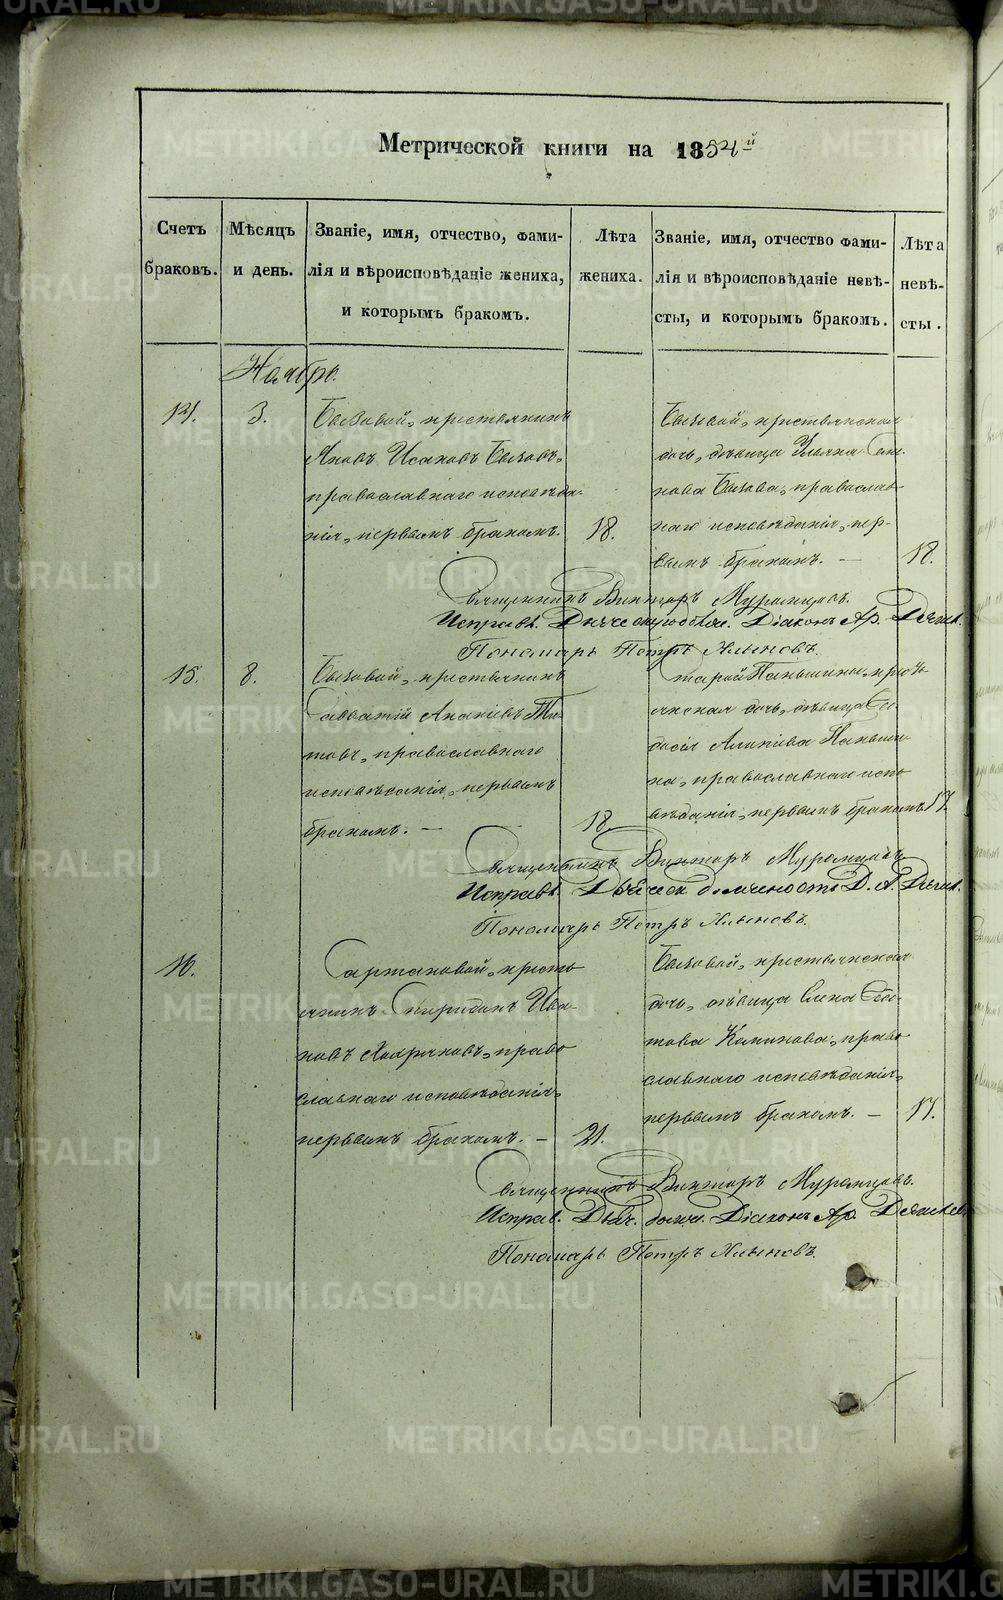 METRIKI.GASO-URAL.RU
Метрической книги на 1854й
Счетъ браковъ.
Мѣсяцъ и день.
Званіе, имя, отчество, фами-
лія и вѣроисповѣданіе жениха,
и которымъ бракомъ.
Лѣта
жениха.
Званіе, имя, отчество фами-
лія и вѣроисповѣданіе невѣ-
сты, и которымъ бракомъ.
Лѣта
невѣ-
сты.
Ноябрь.
14.
3.
Бызовой, крестьянинъ
Яковъ Исаковъ Бызовъ,
православнаго исповѣда-
нія, первымъ бракомъ.
18.
Бызовой, крестьянская
дочь, дѣвица Ульяна
Бызова, православ-
наго исповѣданія, пер-
вымъ бракомъ. —
18.
Священникъ Викторъ Муромцовъ.
Исправ. Діаконъ Ар.
Пономарь Петръ Хлыновъ.
15.
8.
Бызовой, крестьянинъ
Савватій Ананіевъ Ти-
товъ, православнаго
исповѣданія, первымъ
бракомъ. —
18.
Старой Паньшиной, кресть-
янская дочь, дѣвица
Паньши-
на, православнаго испо-
вѣданія, первымъ бракомъ
17.
Священникъ Викторъ Муромцовъ
Исправ. должность Д. А.
Пономарь Петръ Хлыновъ.
16.
крестья-
янинъ Спиридонъ Ива-
новъ право-
славнаго исповѣданія,
первымъ бракомъ. —
21.
Бызовой, крестьянская
дочь, дѣвица Елена
право-
славнаго исповѣданія,
первымъ бракомъ. —
17.
Священникъ Викторъ Муромцовъ.
Исправ. Дьяч. долж. Діаконъ Ар.
Пономарь Петръ Хлыновъ.